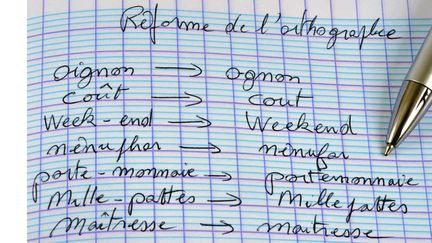 Réforme de l'orthographe
oignon → ognon
coût → cout
Week-end → Weekend
nénuphar → nénufar
porte-monnaie → portemonnaie
Mille-pattes → Millepattes
Maîtresse → maitresse